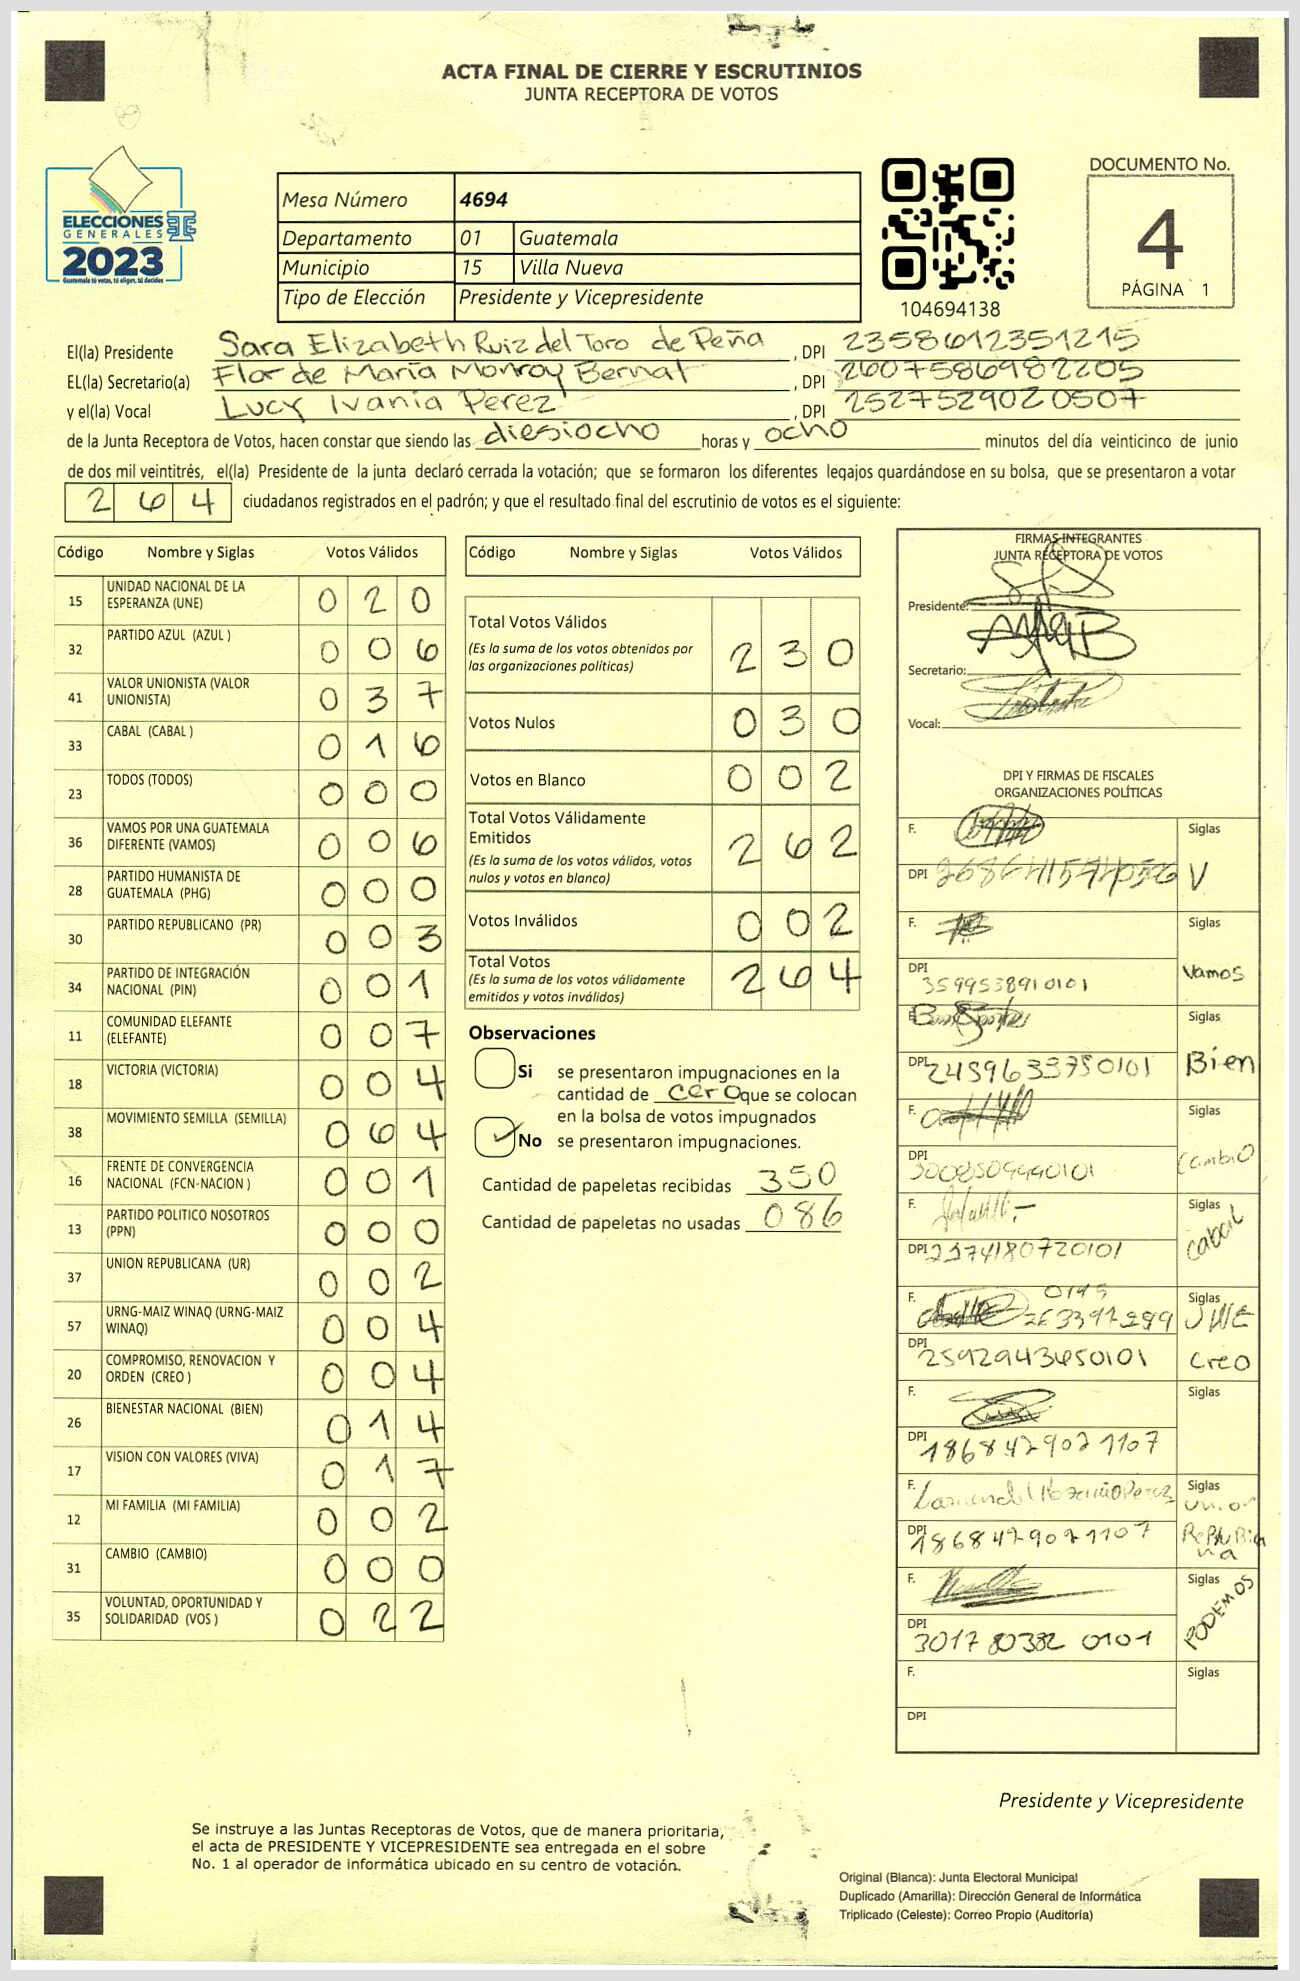 ACTA FINAL DE CIERRE Y ESCRUTINIOS
JUNTA RECEPTORA DE VOTOS
ELECCIONES
GENERALES
2023
Guatemala tú votas, tú eliges, tú decides
Mesa Número 4694
Departamento 01 Guatemala
Municipio 15 Villa Nueva
Tipo de Elección Presidente y Vicepresidente
104694138
DOCUMENTO No.
4
PÁGINA 1
El(la) Presidente Sara Elizabeth Ruiz del Toro de Peña, DPI 2358612351215
EL(la) Secretario(a) Flor de María Monroy Bernat, DPI 2607586982205
y el(la) Vocal Lucy Ivania Perez, DPI 2527529020507
de la Junta Receptora de Votos, hacen constar que siendo las diesiocho horas y ocho minutos del día veinticinco de junio
de dos mil veintitrés, el(la) Presidente de la junta declaró cerrada la votación; que se formaron los diferentes legajos guardándose en su bolsa, que se presentaron a votar
264 ciudadanos registrados en el padrón; y que el resultado final del escrutinio de votos es el siguiente:
Código Nombre y Siglas Votos Válidos
15 UNIDAD NACIONAL DE LA ESPERANZA (UNE) 020
32 PARTIDO AZUL (AZUL ) 006
41 VALOR UNIONISTA (VALOR UNIONISTA) 037
33 CABAL (CABAL ) 016
23 TODOS (TODOS) 000
36 VAMOS POR UNA GUATEMALA DIFERENTE (VAMOS) 006
28 PARTIDO HUMANISTA DE GUATEMALA (PHG) 000
30 PARTIDO REPUBLICANO (PR) 003
34 PARTIDO DE INTEGRACIÓN NACIONAL (PIN) 001
11 COMUNIDAD ELEFANTE (ELEFANTE) 007
18 VICTORIA (VICTORIA) 004
38 MOVIMIENTO SEMILLA (SEMILLA) 064
16 FRENTE DE CONVERGENCIA NACIONAL (FCN-NACION ) 001
13 PARTIDO POLITICO NOSOTROS (PPN) 000
37 UNION REPUBLICANA (UR) 002
57 URNG-MAIZ WINAQ (URNG-MAIZ WINAQ) 004
20 COMPROMISO, RENOVACION Y ORDEN (CREO ) 004
26 BIENESTAR NACIONAL (BIEN) 014
17 VISION CON VALORES (VIVA) 017
12 MI FAMILIA (MI FAMILIA) 002
31 CAMBIO (CAMBIO) 000
35 VOLUNTAD, OPORTUNIDAD Y SOLIDARIDAD (VOS ) 022
Código Nombre y Siglas Votos Válidos
Total Votos Válidos 230
(Es la suma de los votos obtenidos por
las organizaciones políticas)
Votos Nulos 030
Votos en Blanco 002
Total Votos Válidamente
Emitidos 262
(Es la suma de los votos válidos, votos
nulos y votos en blanco)
Votos Inválidos 002
Total Votos 264
(Es la suma de los votos válidamente
emitidos y votos inválidos)
Observaciones
Si se presentaron impugnaciones en la
cantidad de cero que se colocan
en la bolsa de votos impugnados
No se presentaron impugnaciones.
Cantidad de papeletas recibidas 350
Cantidad de papeletas no usadas 086
FIRMAS INTEGRANTES
JUNTA RECEPTORA DE VOTOS
Presidente:
Secretario:
Vocal:
DPI Y FIRMAS DE FISCALES
ORGANIZACIONES POLÍTICAS
F. Siglas
DPI V
F. Siglas
DPI 3599538910101 Vamos
Siglas
DPI 2459633750101 Bien
F. Siglas
DPI Cambio
F. Siglas
DPI 2174180720101 Cabal
F. Siglas UNE
DPI 2592943650101 Creo
F. Siglas
DPI 1868479071107
F. Siglas Union
DPI 1868479071107 Republicana
F. Siglas
DPI 3017803820101 PODEMOS
F. Siglas
DPI
Presidente y Vicepresidente
Se instruye a las Juntas Receptoras de Votos, que de manera prioritaria,
el acta de PRESIDENTE Y VICEPRESIDENTE sea entregada en el sobre
No. 1 al operador de informática ubicado en su centro de votación.
Original (Blanca): Junta Electoral Municipal
Duplicado (Amarilla): Dirección General de Informática
Triplicado (Celeste): Correo Propio (Auditoría)